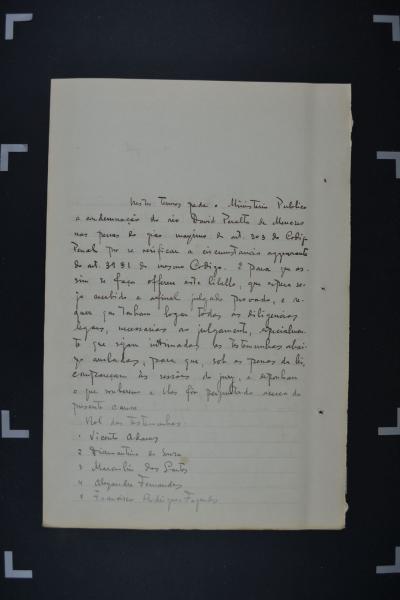 Nestes termos pede o Ministerio Publico
a condemnação do réo David Peralta de Menezes
nas penas do gráo maximo do art. 303 do Codigo
Penal por se verificar a circumstancia aggravante
do art. 39 § 1 do mesmo Codigo. E para que as-
sim se faça offerece este libello, que espera se-
ja recebido e afinal julgado provado, e re-
quer que tenham logar todas as diligencias
legaes, necessarias ao julgamento, especialmen-
te que sejam intimadas as testemunhas abai-
xo arroladas, para que, sob as penas da lei,
compareçam ás sessões do jury, e deponham
o que souberem e lhes fôr perguntado acerca da
presente causa.
Rol das testemunhas:
1 Vicente
2 Diamantino de Souza
3 dos Santos
4 Alexandre Fernandes
5 Francisco Rodrigues Fagundes